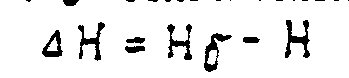 Δ H = H δ - H